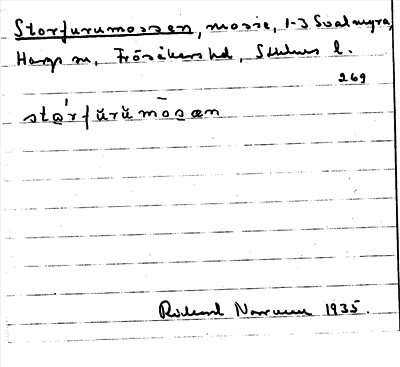 Storfurumossen, mosse, 1-3 Svalmyra,
Hargs sn, Frösåkers hd, Sthlms l.
269
stǫ́rfŭrŭmōsæn
Rickard Norrman 1935.